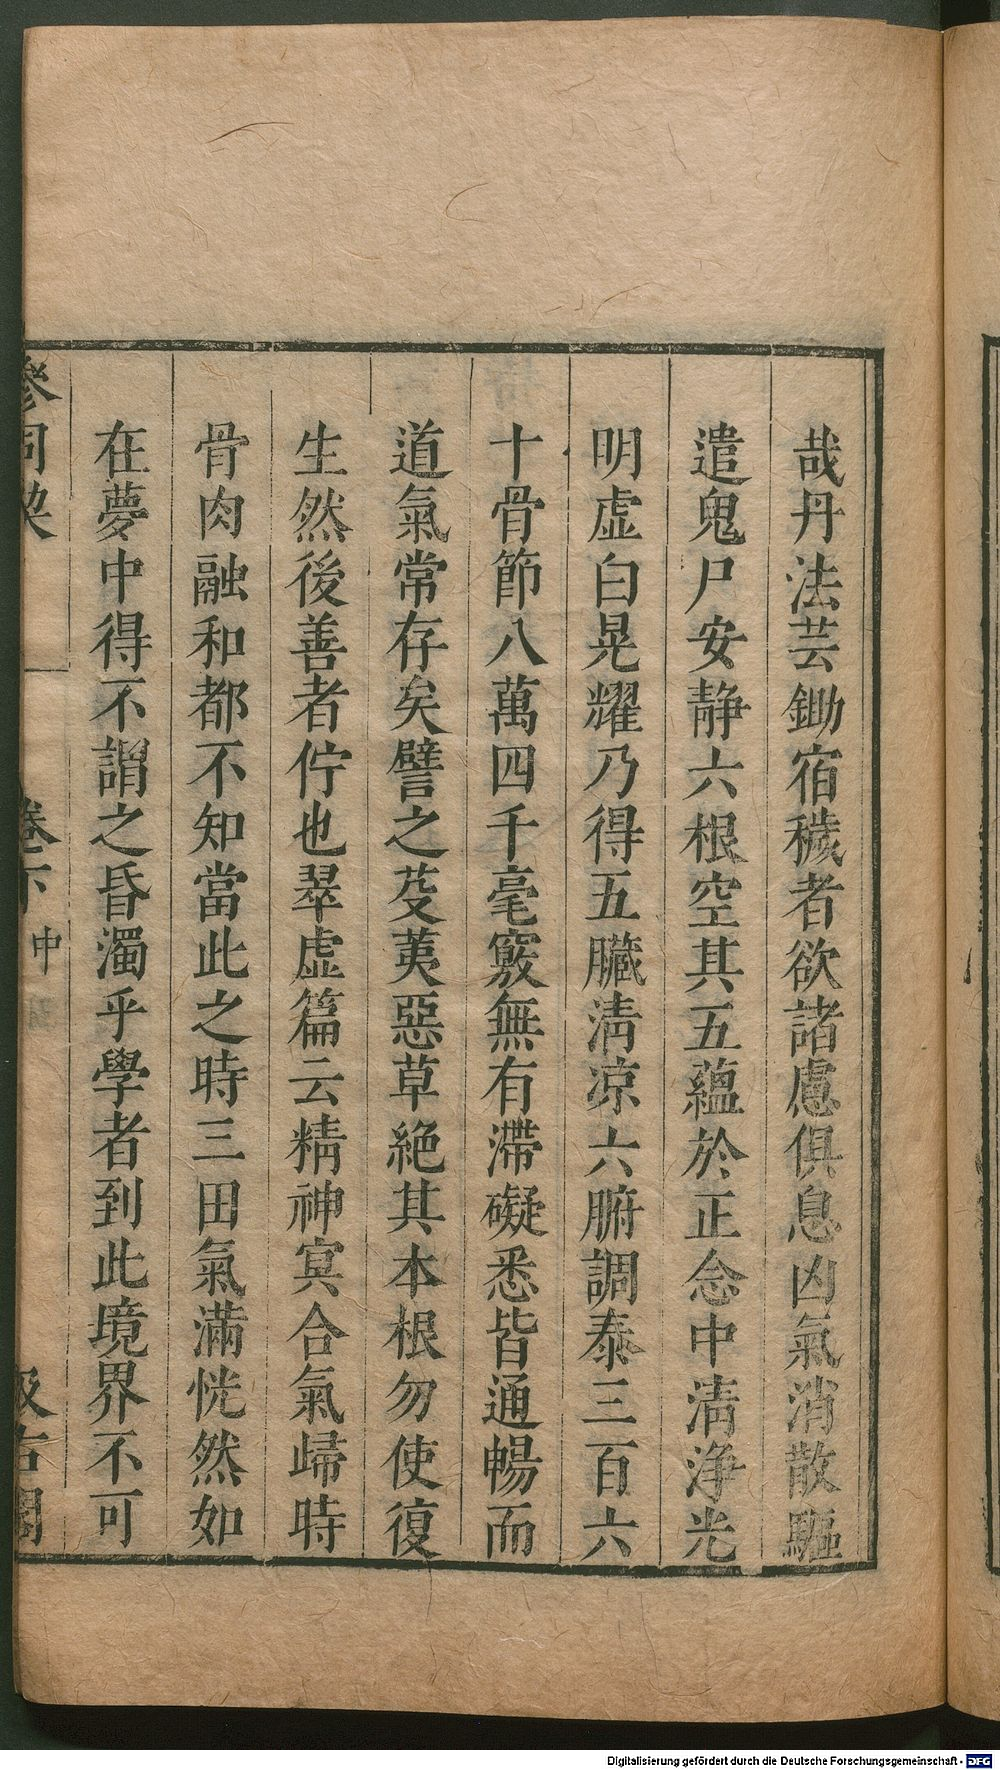 哉丹法芸鋤宿穢者欲諸慮俱息凶氣消散驅
遣鬼尸安靜六根空其五蘊於正念中清淨光
明虛白晃耀乃得五臟清凉六腑調泰三百六
十骨節八萬四千毫竅無有滯礙悉皆通暢而
道氣常存矣譬之芟荑惡草絶其本根勿使復
生然後善者佇也翠虛篇云精神㝠合氣歸時
骨肉融和都不知當此之時三田氣滿恍然如
在夢中得不謂之昏濁乎學者到此境界不可
參同契
卷下
中
汲古閣
Digitalisierung gefördert durch die Deutsche Forschungsgemeinschaft - DFG